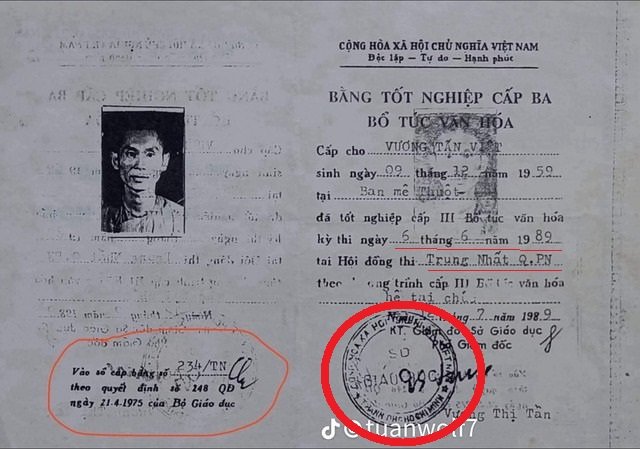 CỘNG HÒA XÃ HỘI CHỦ NGHĨA VIỆT NAM
Độc lập — Tự do — Hạnh phúc
BẰNG TỐT NGHIỆP CẤP BA
BỔ TÚC VĂN HÓA
Cấp cho VƯƠNG TẤN VIỆT
sinh ngày 09 tháng 12 năm 1959
tại Ban mê Thuột
đã tốt nghiệp cấp III Bổ túc văn hóa
kỳ thi ngày 6 tháng 6 năm 1989
tại Hội đồng thi Trung Nhất Q.PN
theo chương trình cấp III Bổ túc văn hóa
hệ tại chức
7 năm 1989
KT. Giám đốc Sở Giáo dục
Phó Giám đốc
SỞ
GIÁO DỤC
THÀNH PHỐ HỒ CHÍ MINH
Vương Thị Tần
Vào sổ cấp bằng số 234/TN
theo quyết định số 248 QĐ
ngày 21.4.1975 của Bộ Giáo dục
@tuanwolf7